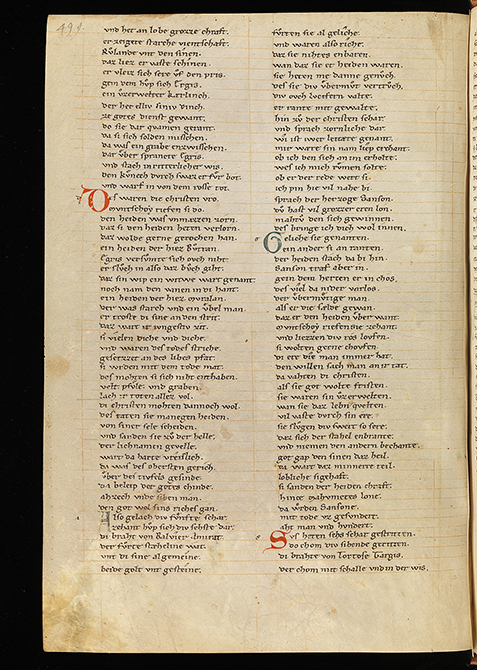 499.
vnd het an lobe grozze chraft.
er zeigete starche vientschaft.
Rv̊lande vnt den sinen.
daz liez er vaste schinen.
er vleiz sich sere vf den pris.
gein dem hv̊p sich Egris.
ein vzerwelter Kaerlinch.
der het elliv siniv dinch.
ze gotes dienst gewant.
do sie dar quamen gerant.
da si sich solden mischen.
da was ein grabe enzwischen.
dar vber sprancte Egris.
vnd stach in ritterlicher wis.
den kv̊nech durch swaz er fvr bot.
vnd warf in von dem rosse tot.
Des waren die christen vro.
Mvntschoy riefen si do.
den heiden was vnmazen zorn.
daz si den heren heten verlorn.
daz wolde gerne gerochen han.
ein heiden der hiez
Egris versvmte sich ovch niht.
er slv̊ch in also daz bv̊ch giht.
daz sin wip ein witwe wart genant.
noch nam den winen in di hant.
ein heiden der hiez Moralan.
der was starch vnd ein vbel man.
er troste di sine an den strit.
daz wart iz
si vielen diche vnd diche.
vnd waren des todes striche.
gesetzet an des libes pfat.
si wrden mit dem tode mat.
des mohten si sich niht enthaben.
velt pfvle vnd graben.
lach ir toten allez vol.
di christen mohten dannoch wol.
des taten sie manegen heiden.
von siner sele scheiden.
vnd sanden sie zv̊ der helle.
der lichnamen gevelle.
wart da harte vreislich.
da was des obersten gerich.
vber des tievels gesinde.
da beleip der gotes chinde.
ahzech vnde siben man.
den got wol sins riches gan.
Also gelach div fvnfte schar.
zehant hv̊p sich div sehste dar.
di braht von Balvier Amvrat.
der fv̊rte stæheline wat.
vnt di sine algemeine.
beide golt vnt gesteine.
fv̊rten sie al geliche.
vnd waren also riche.
daz sie nihtes enbaren.
wan daz sie et heiden waren.
sie heten me danne genv̊ch.
des sie div vbermv̊t vertrv̊ch.
div ovch lvcifern valte.
er rante mit gewalte.
hin zv̊ der christen schar.
vnd sprach zornliche dar.
wa ist wer lettare genant.
mit wate sin nam liep erchant.
ob ich den sich an im erholte.
wes ich mich rv̊men solte.
ob er der rede wert si.
ich pin hie vil nahe bi.
sprach der herzoge Sanson.
dv̊ hast vil grozzer eren lon.
mahtv̊ den sich gewinnen.
des bringe ich dich wol innen.
Geliche sie genanten.
ein ander si an ranten.
der heiden stach da bi hin.
Sanson traf aber in.
gein dem herzen er in chos.
des viel da nider varlos.
der vbermvtige man.
als er die sælde gewan.
daz er den heiden vber want.
Mvntschoy riefen sie zehant.
vnd liezzen div ros lovfen.
si wolten gerne chovfen.
di ere die man immer hat.
den willen sach man an ir tat.
da vahten di christen.
als sie got wolte fristen.
sie waren sin vz erwelten.
wan sie daz leben quelten.
vil vaste durch sin ere.
sie slv̊gen div swert so sere.
daz sich der stahel enbrante.
vnd niemen den andern bechante.
got gap den sinen daz heil.
da wart daz minnerre teil.
lobliche sigehaft.
si sanden der heiden chraft.
hinze Mahvmetes lone.
da wrden Sansone.
mit tode vz gesundert.
aht man vnd hvndert.
Svs heten sehs schar gestriten.
do chom div sibende geriten.
di brahte von Tortose Targis.
der chom mit schalle vnd in der wis.